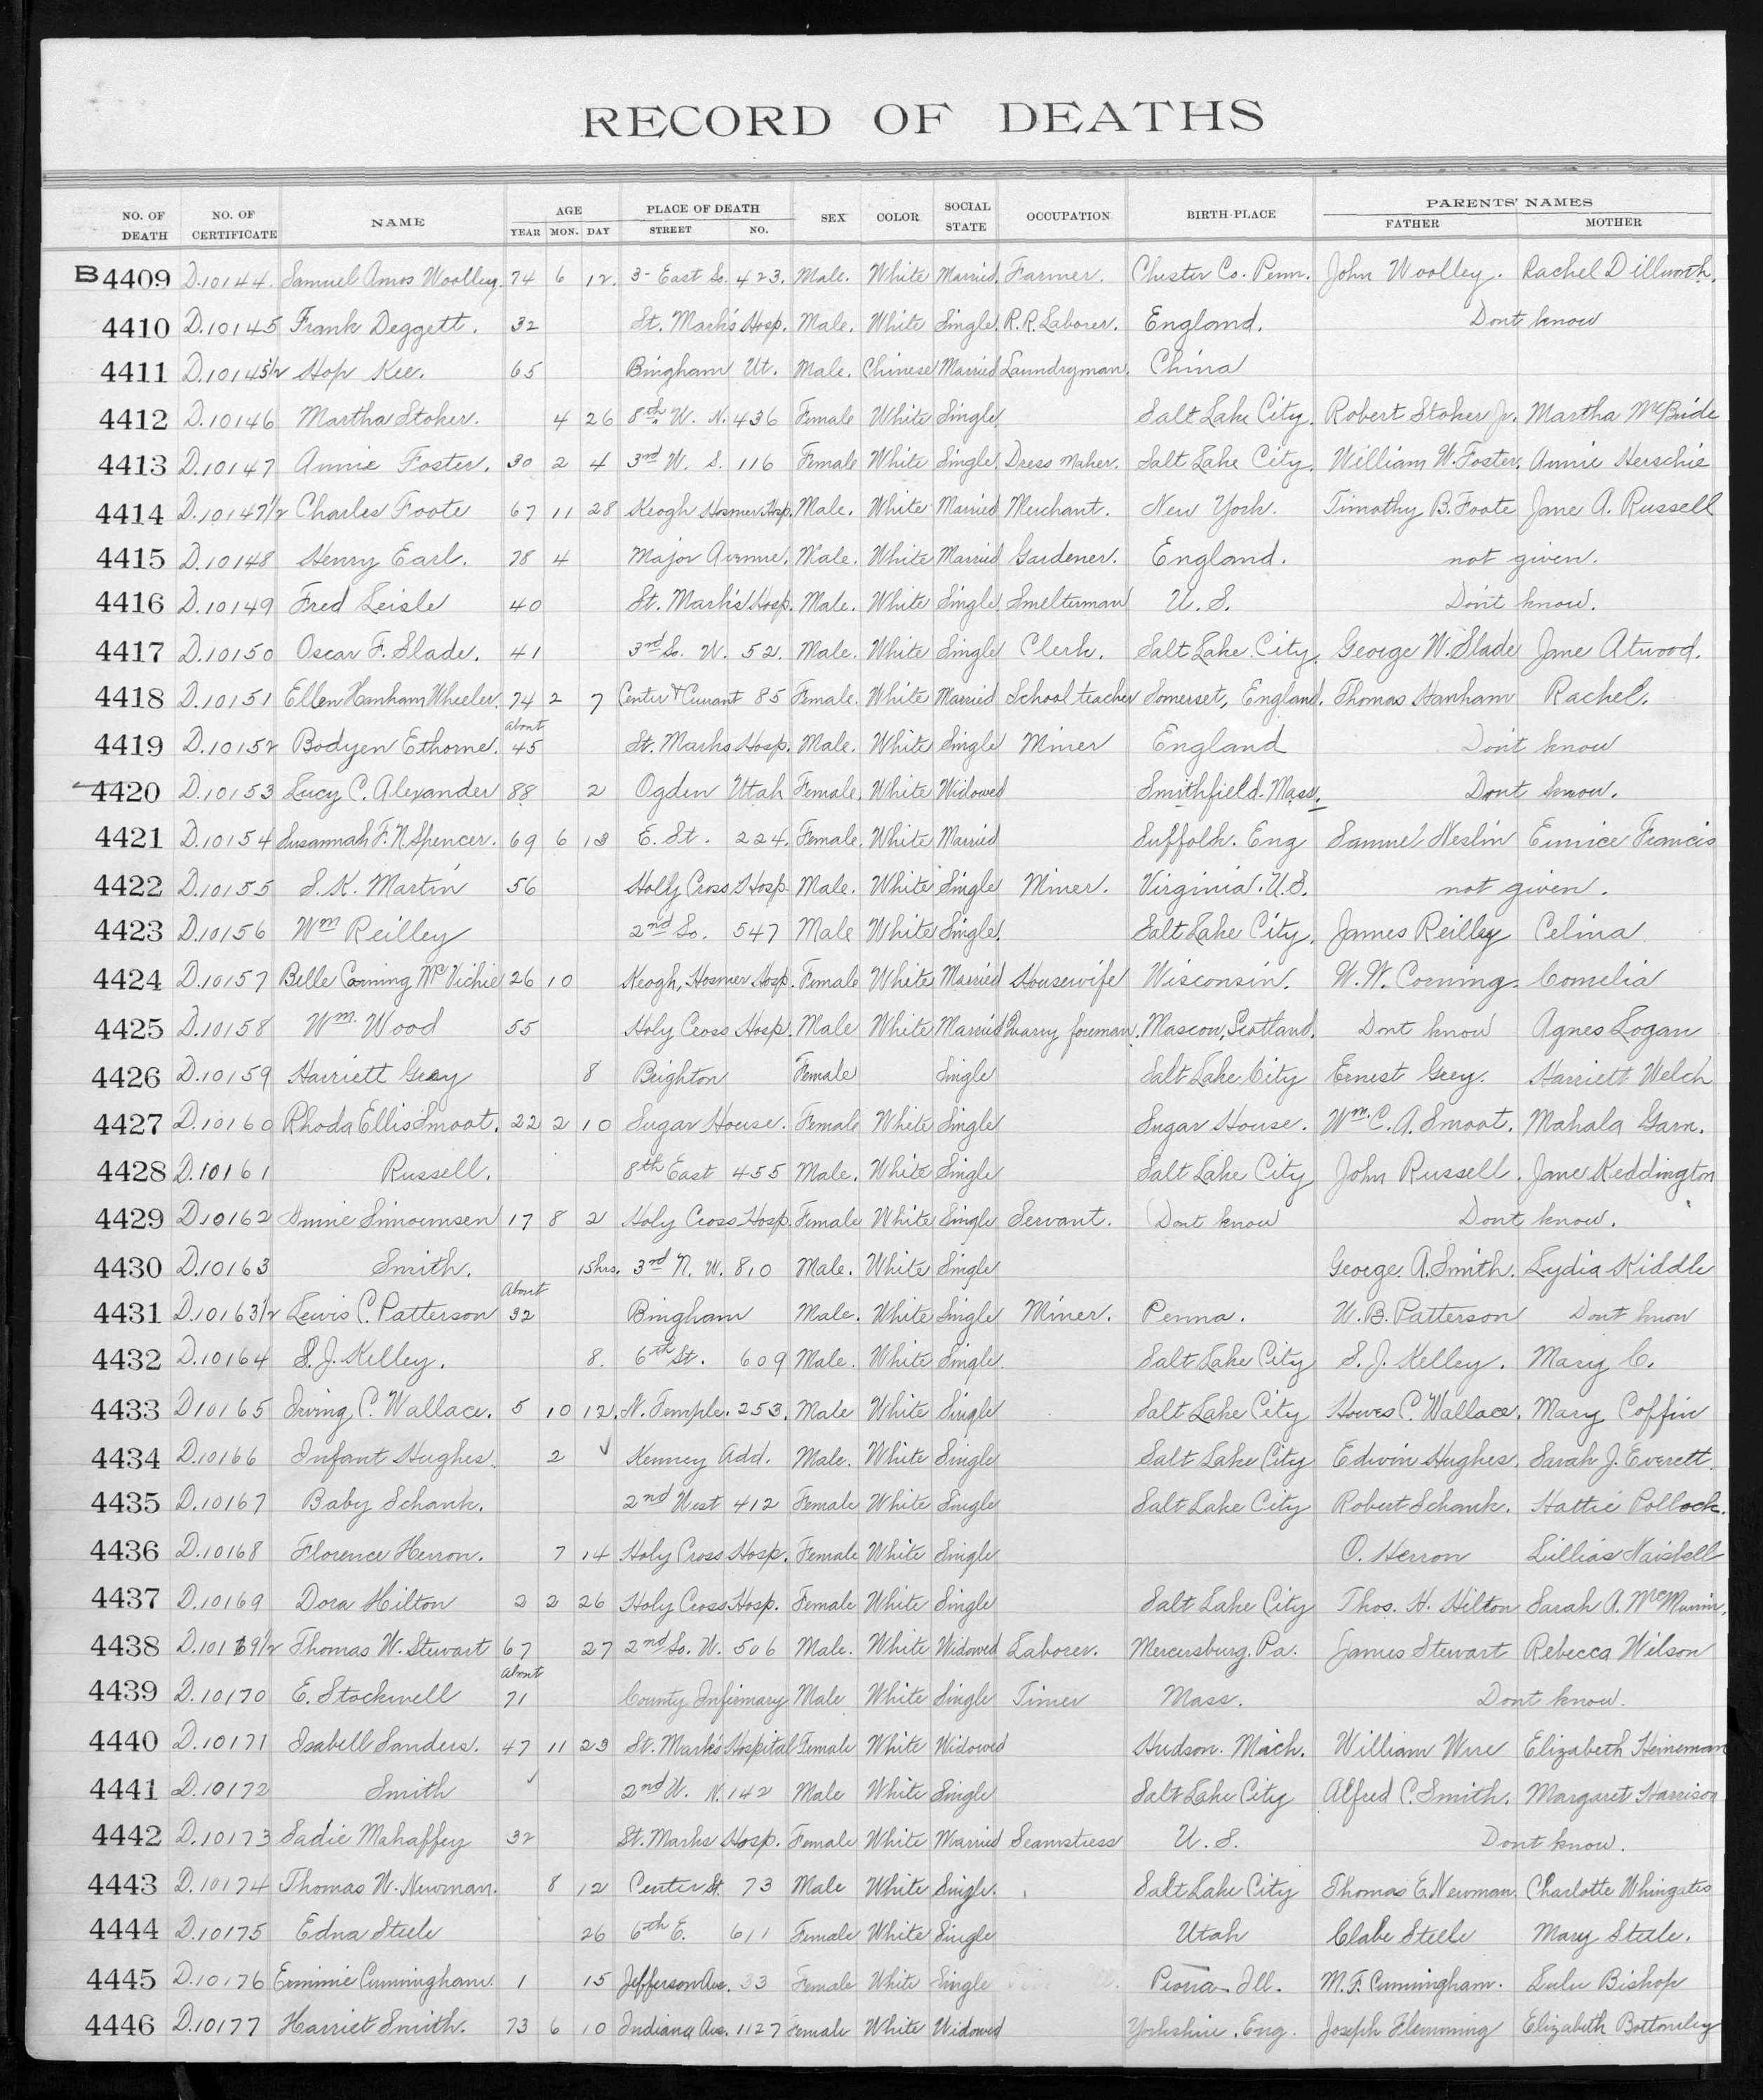 RECORD OF DEATHS
NO. OF DEATH NO. OF CERTIFICATE NAME AGE YEAR MON. DAY PLACE OF DEATH STREET NO. SEX COLOR SOCIAL STATE OCCUPATION BIRTH-PLACE PARENTS' NAMES FATHER MOTHER
B4409 D.10144. Samuel Amos Woolley. 74 6 12. 3- East So. 423. Male. White Married. Farmer. Chester Co. Penn. John Woolley. Rachel Dillworth.
4410 D.10145 Frank Deggett. 32 St. Mark's Hosp. Male. White Single. R.R. Laborer. England. Dont know
4411 D.10145½ Hop Kee. 65 Bingham Ut. Male. Chinese Married Laundryman. China
4412 D.10146 Martha Stoker. 4 26 8th. W. N. 436 Female White Single. Salt Lake City. Robert Stoker Jr. Martha McBride
4413 D.10147 Annie Foster. 30 2 4 3rd W. S. 116 Female White Single. Dress Maker. Salt Lake City. William W. Foster. Annie Herschie
4414 D.10147½ Charles Foote 67 11 28 Keogh Hosmer Hosp. Male. White Married Merchant. New York. Timothy B. Foote Jane A. Russell
4415 D.10148 Henry Earl. 78 4 Major Avenue. Male. White Married Gardener. England. not given.
4416 D.10149 Fred Leisle 40 St. Mark's Hosp. Male. White Single. Smelterman U. S. Don't know.
4417 D.10150 Oscar F. Slade. 41 3rd So. W. 52. Male. White Single Clerk. Salt Lake City. George W. Slade Jane Atwood.
4418 D.10151 Ellen Hanham Wheeler. 74 2 7 Center & Currant 85 Female. White Married School teacher Somerset, England. Thomas Hanham Rachel.
4419 D.10152 Bodyen Ethorne. about 45 St. Marks Hosp. Male. White Single Miner England Don't know
4420 D.10153 Lucy C. Alexander 88 2 Ogden Utah Female. White Widowed Smithfield. Mass. Dont know.
4421 D.10154 Susannah F. N. Spencer. 69 6 18 E. St. 224. Female. White Married Suffolk. Eng Samuel Neslin Eunice Francis
4422 D.10155 S. K. Martin 56 Holy Cross Hosp. Male. White Single Miner. Virginia. U.S. not given.
4423 D.10156 Wm Reilley 2nd So. 547 Male White Single. Salt Lake City. James Reilley Celina
4424 D.10157 Belle Corning McVichie 26 10 Keogh, Hosmer Hosp. Female White Married Housewife Wisconsin. W. W. Corning. Cornelia
4425 D.10158 Wm. Wood 55 Holy Cross Hosp. Male White Married Quarry foreman. Mascow, Scotland. Dont know Agnes Logan
4426 D.10159 Harriett Grey 8 Brighton Female Single Salt Lake City Ernest Grey. Harriett Welch
4427 D.10160 Rhoda Ellis Smoot. 22 2 10 Sugar House. Female White Single Sugar House. Wm. C. A. Smoot. Mahala Garn.
4428 D.10161 Russell. 8th East 455 Male. White Single Salt Lake City John Russell. Jane Keddington
4429 D10162 Annie Simounsen 17 8 2 Holy Cross Hosp. Female White Single Servant. Dont know Dont know.
4430 D.10163 Smith. 15hrs. 3rd N. W. 810 Male. White Single George. A. Smith. Lydia Kiddle
4431 D.10163½ Lewis C. Patterson About 32 Bingham Male. White Single Miner. Penna. W. B. Patterson Dont know
4432 D.10164 S. J. Kelley. 8. 6th St. 609 Male. White Single Salt Lake City S. J. Kelley. Mary C.
4433 D10165 Irving C. Wallace. 5 10 12. N. Temple. 253. Male White Single Salt Lake City Howes C. Wallace. Mary Coffin
4434 D.10166 Infant Hughes. 2 ✓ Kenney Add. Male. White Single Salt Lake City Edwin Hughes. Sarah J. Everett.
4435 D.10167 Baby Schank. 2nd West 412 Female White Single Salt Lake City Robert Schank. Hattie Pollock.
4436 D.10168 Florence Herron. 7 14 Holy Cross Hosp. Female White Single O. Herron Lillias Naisbell
4437 D.10169 Dora Hilton 2 2 26 Holy Cross Hosp. Female White Single Salt Lake City Thos. H. Hilton Sarah A.
4438 D.10169½ Thomas W. Stewart 67 27 2nd So. W. 506 Male. White Widowed Laborer. Mercersburg. Pa. James Stewart Rebecca Wilson
4439 D.10170 E. Stockwell about 71 County Infirmary Male White Single Tinner Mass. Dont know.
4440 D.10171 Isabell Sanders. 47 11 23 St. Mark's Hospital Female White Widowed Hudson. Mich. William Wire Elizabeth Heineman
4441 D.10172 Smith ✓ 2nd W. N. 142 Male White Single Salt Lake City Alfred C. Smith. Margaret Harrison
4442 D.10173 Sadie Mahaffey 32 St. Marks Hosp. Female White Married Seamstress U. S. Dont know.
4443 D.10174 Thomas W. Newman. 8 12 Center St. 73 Male White Single. Salt Lake City Thomas E. Newman. Charlotte Whingates
4444 D.10175 Edna Steele 26 6th E. 611 Female White Single Utah Clabe Steele Mary Steele.
4445 D.10176 Erminie Cunningham. 1 15 Jefferson Ave. 33 Female White Single Pioria. Ill. M. F. Cunningham. Lulu Bishop
4446 D.10177 Harriet Smith. 73 6 10 Indiana Ave. 1127 Female White Widowed Yorkshire. Eng. Joseph Flemming Elizabeth Bottomley